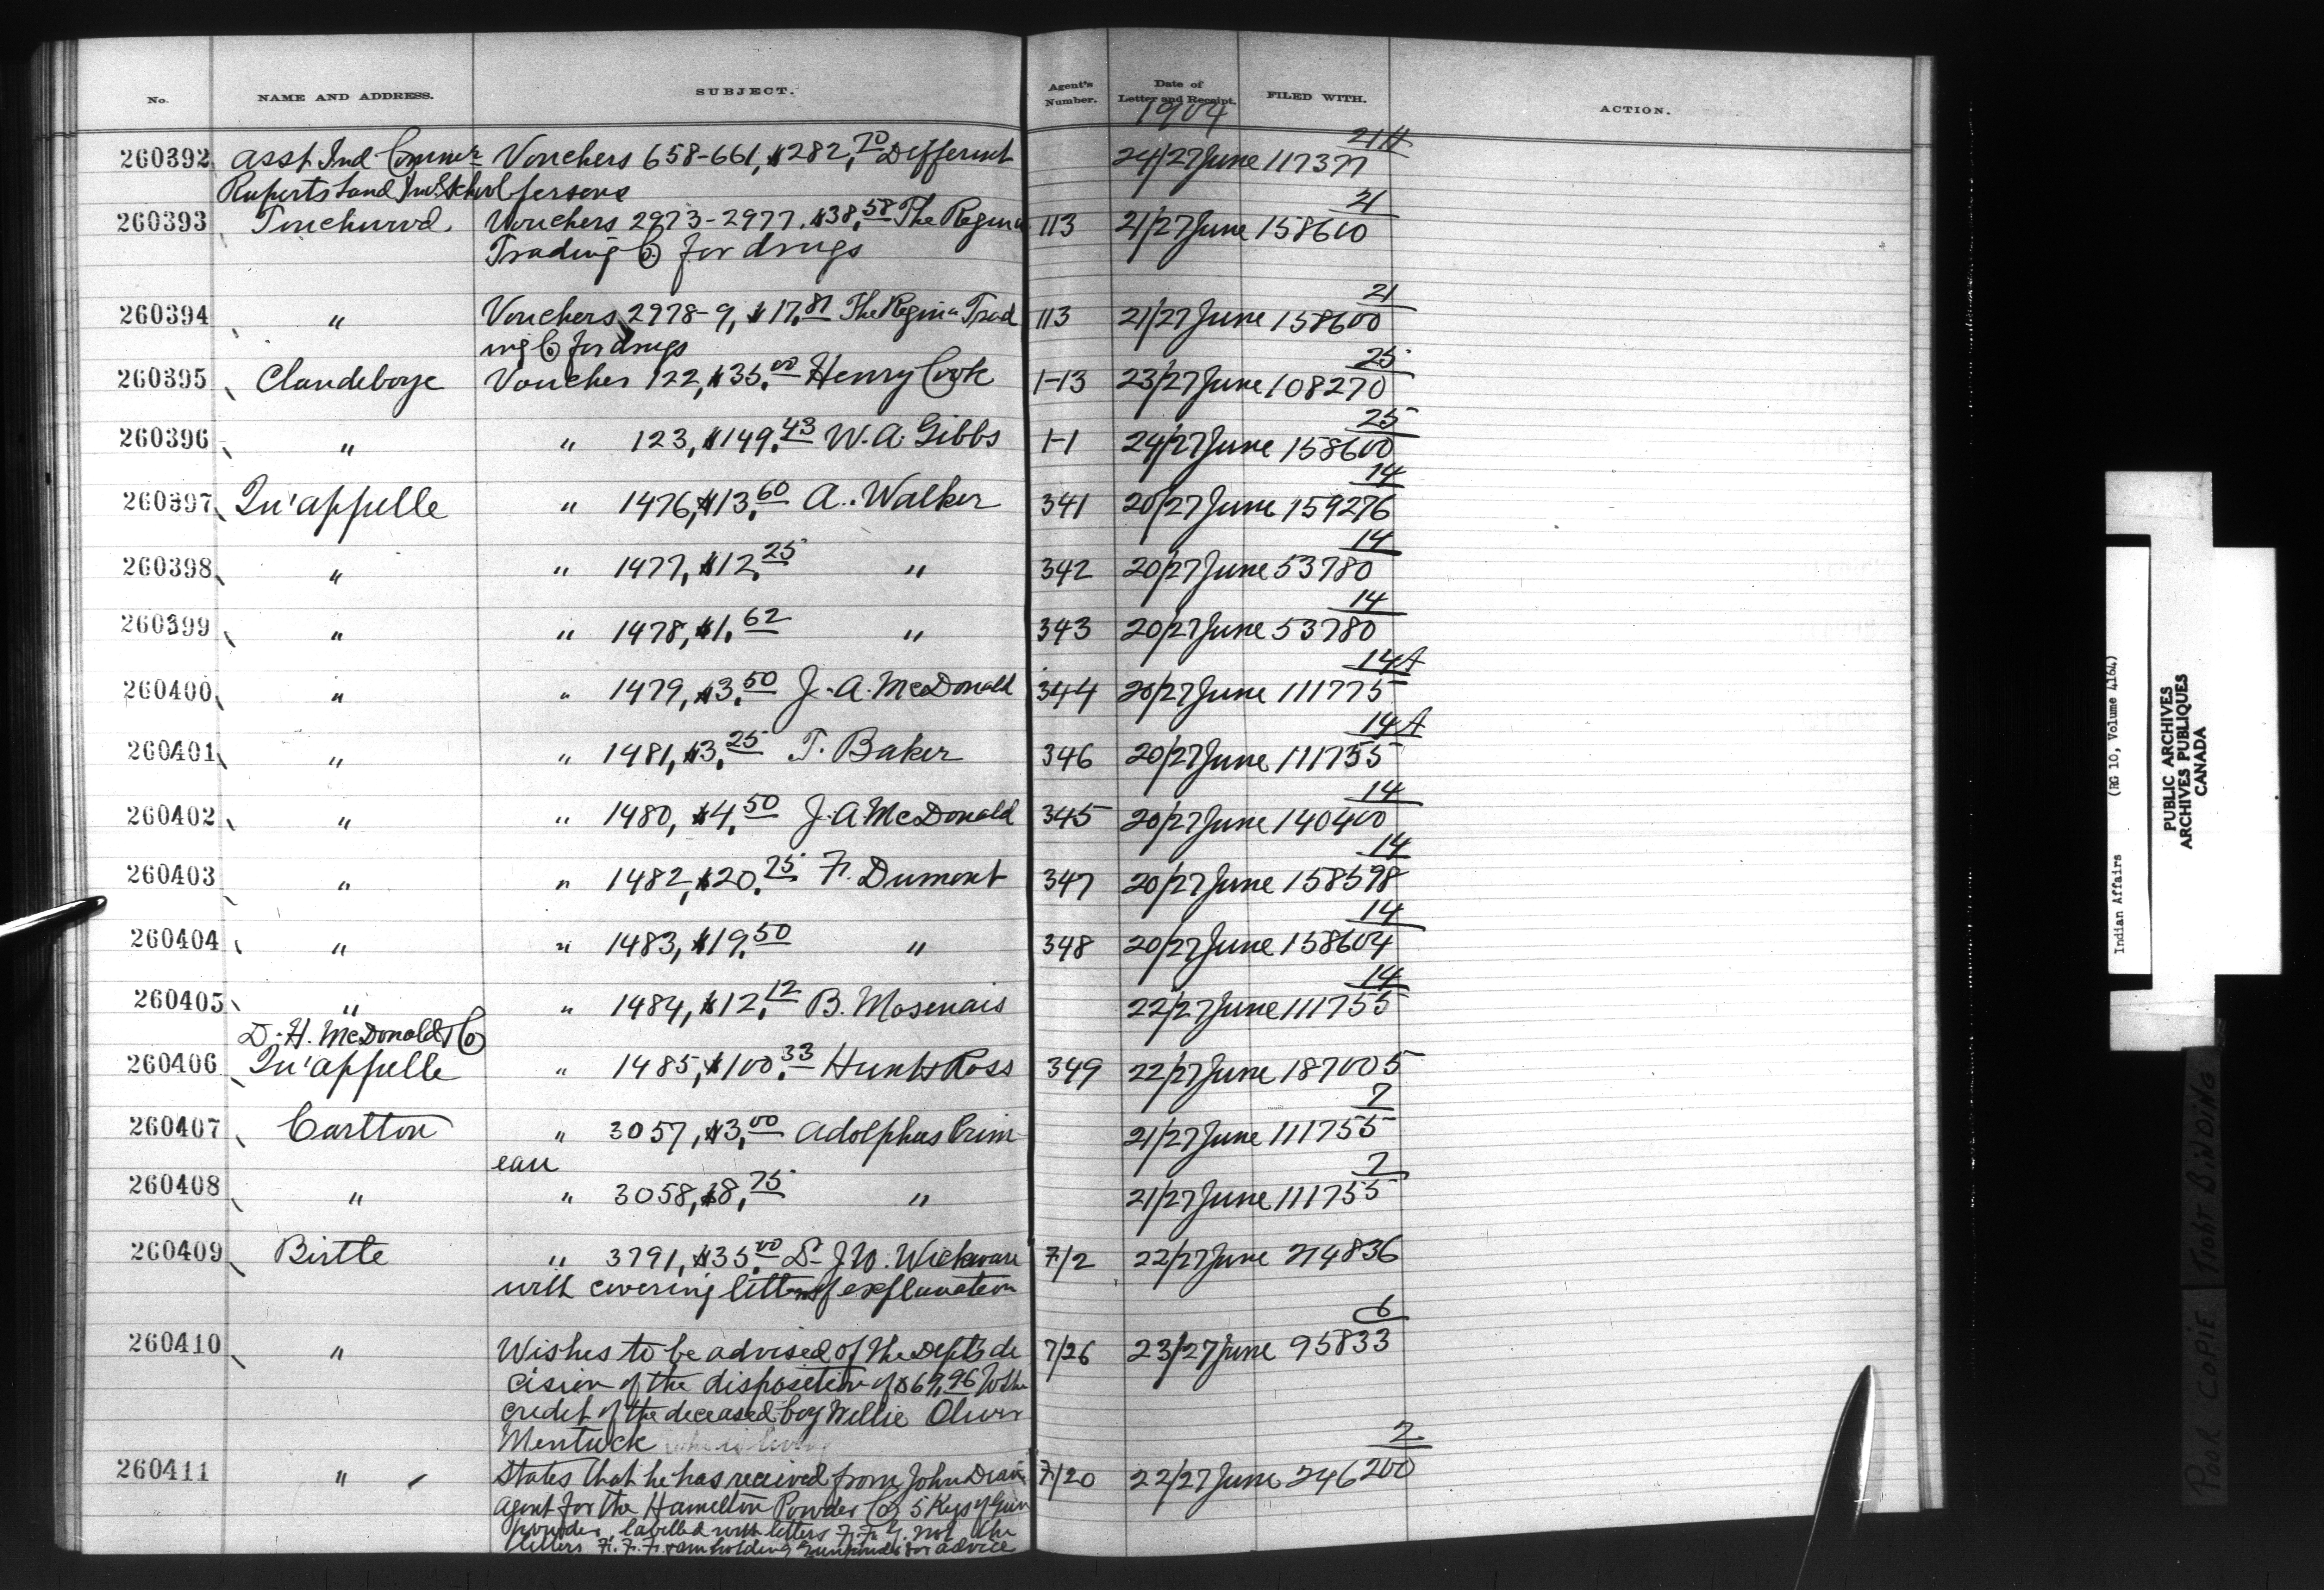 No. NAME AND ADDRESS. SUBJECT. Agent's Number. Date of Letter and Receipt. FILED WITH. ACTION.
1904
21H
260392 Asst Ind Commr Vouchers 658-661, $282.70 Different 24/27 June 117377
Ruperts Land Ind. School persons
21
260393 Touchwood. Vouchers 2973-2977. $38.58 The Regina 113 21/27 June 158600
Trading Co for drugs
21
260394 " Vouchers 2978-9, $17.81 The Regina Trad 113 21/27 June 158600
ing Co for drugs
25
260395 Clandeboye Voucher 122, $35.00 Henry Cook 1-13 23/27 June 108270
25
260396 " " 123, $149.43 W. A. Gibbs 1-1 24/27 June 158600
14
260397 Qu'appelle " 1476, $13.60 A. Walker 341 20/27 June 159276
14
260398 " " 1477, $12.25 " 342 20/27 June 53780
14
260399 " " 1478, $1.62 " 343 20/27 June 53780
14A
260400 " " 1479, $3.50 J. A. McDonald 344 20/27 June 111775
14A
260401 " " 1481, $3.25 T. Baker 346 20/27 June 111755
14
260402 " " 1480, $4.50 J. A McDonald 345 20/27 June 140400
14
260403 " " 1482, $20.75 F. Dumont 347 20/27 June 158598
14
260404 " " 1483, $19.50 " 348 20/27 June 158604
14
260405 " " 1484, $12.12 B. Mosenais 22/27 June 111755
D. H. McDonald & Co
260406 Qu'appelle " 1485, $100.33 Hunt & Ross 349 22/27 June 187005
7
260407 Carlton " 3057, $3.00 Adolphus Prim- 21/27 June 111755
eau
7
260408 " " 3058, $8.75 " 21/27 June 111755
260409 Birtle " 3791, $35.00 Dr J. W. Wickware 7/2 22/27 June 214836
with covering letter of explanation
6
260410 " Wishes to be advised of the Dept's de 7/26 23/27 June 95833
cision of the disposition of $69.96 to the
credit of the deceased boy Willie Oliver
Mentuck
2
260411 " States that he has received from John 7/20 22/27 June 246200
agent for the Hamilton Powder Co, 5 Kegs of Gun
powder, labelled with letters F. F. G. not the
letters F. F. F. & am holding gunpowder for advice
Indian Affairs (RG 10, Volume 4164)
PUBLIC ARCHIVES
ARCHIVES PUBLIQUES
CANADA
POOR COPIE TIGHT BINDING